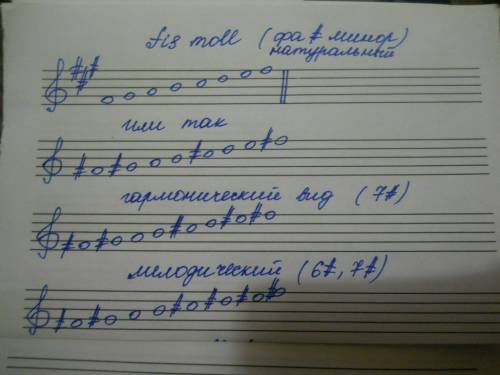 fis moll (фа # минор)
натуральный
или так
гармонический вид (7#)
мелодический (6#, 7#)